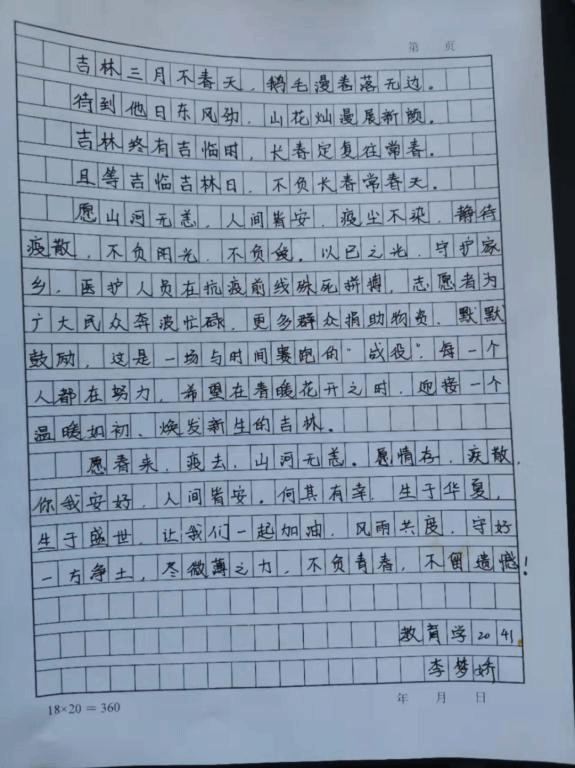 第 页
吉林三月不春天，鹅毛漫卷落无边。
待到他日东风劲，山花灿漫展新颜。
吉林终有吉临时，长春定复往常春。
且等吉临吉林日，不负长春常春天。
愿山河无恙，人间皆安，疫尘不染，静待
疫散，不负阳光，不负。以己之光，守护家
乡，医护人员在抗疫前线殊死拼搏，志愿者为
广大民众奔波忙碌，更多群众捐助物资，默默
鼓励，这是一场与时间赛跑的“战役”。每一个
人都在努力，希望在春暖花开之时，迎接一个
温暖如初、焕发新生的吉林。
愿春来，疫去，山河无恙。愿情存，疾散，
你我安好，人间皆安。何其有幸，生于华夏，
生于盛世，让我们一起加油，风雨共度，守好
一方净土，尽微薄之力，不负青春，不留遗憾！
教育学2041
李梦娇
18×20=360
年 月 日